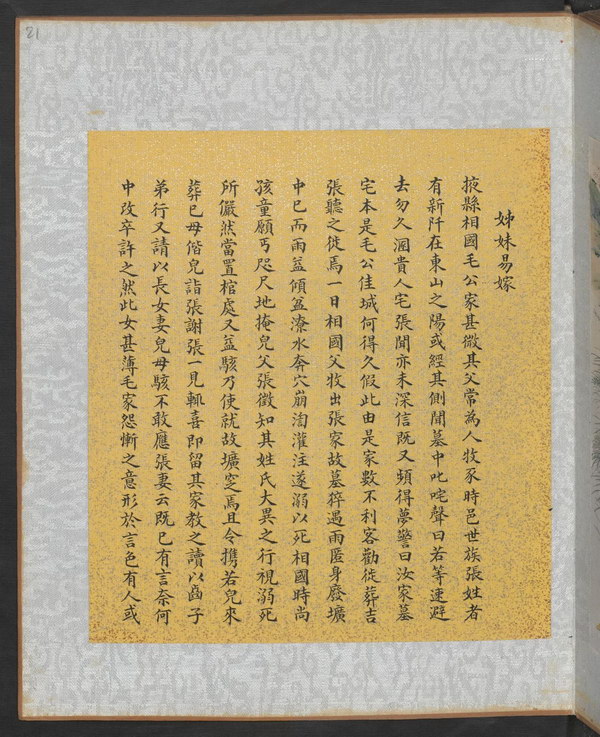 21
姊妹易嫁
掖縣相國毛公家甚微其父常為人牧豕時邑世族張姓者
有新阡在東山之陽或經其側聞墓中叱咤聲曰若等速避
去勿久溷貴人宅張聞亦未深信既又頻得夢警曰汝家墓
宅本是毛公佳城何得久假此由是家數不利客勸徙葬吉
張聽之徙焉一日相國父牧出張家故墓猝遇雨匿身廢壙
中已而雨益傾盆潦水奔穴崩淘灌注遂溺以死相國時尚
孩童願丐咫尺地掩兒父張徵知其姓氏大異之行視溺死
所儼然當置棺處又益駭乃使就故壙窆焉且令攜若兒來
葬已母偕兒詣張謝張一見輒喜即留其家教之讀以齒子
弟行又請以長女妻兒母駭不敢應張妻云既已有言奈何
中改卒許之然此女甚薄毛家怨慚之意形於言色有人或